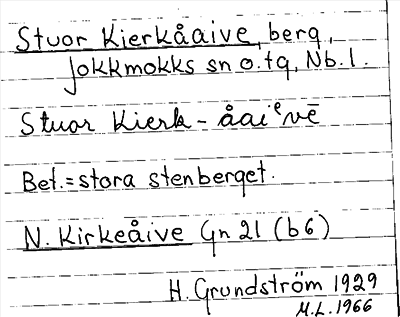 Stuor Kierkåaive, berg,
Jokkmokks sn o. tg, Nb. l.
Stuor Kierk-åaiᵉvē
Bet. = stora stenberget.
N. Kirkeåive Gn 21 (b6)
H. Grundström 1929
M.L. 1966